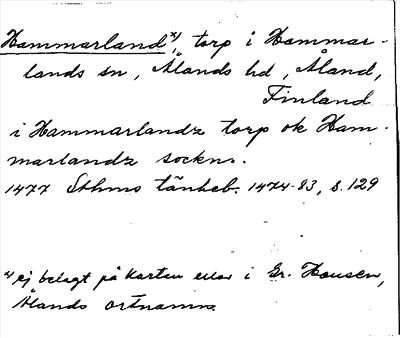 Hammarland x), torp i Hammar-
lands sn, Ålands hd, Åland,
Finland
i Hammarlandz torp ok Ham-
marlandz sockn.
1477 Sthms tänkeb. 1474-83, s. 129
x) ej belagt på kartan eller i Gr. Hausen,
Ålands ortnamn.